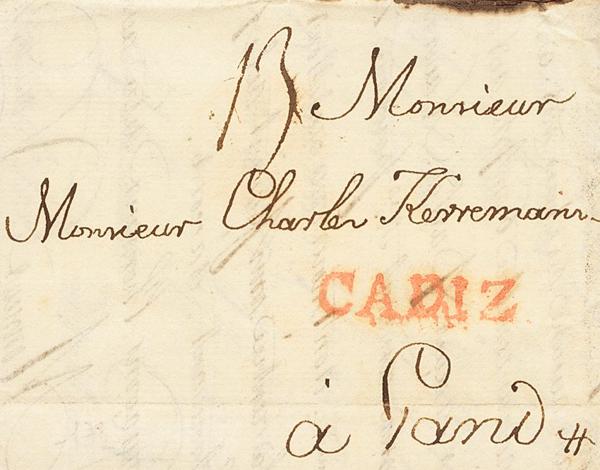 13 Monsieur
Monsieur Charles Kerremans
CADIZ
à Gand